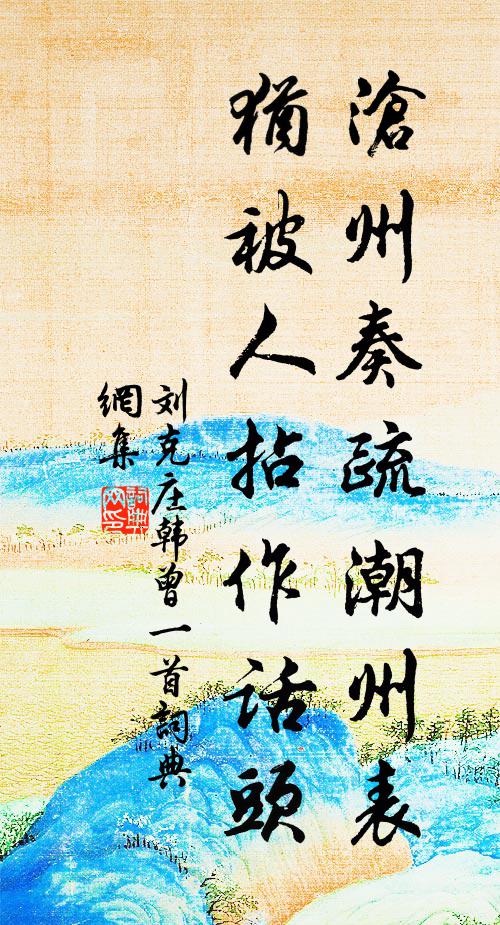 滄州奏疏潮州表
猶被人拈作话頭
刘克庄韩曾一首詞典
網集
詞典網印